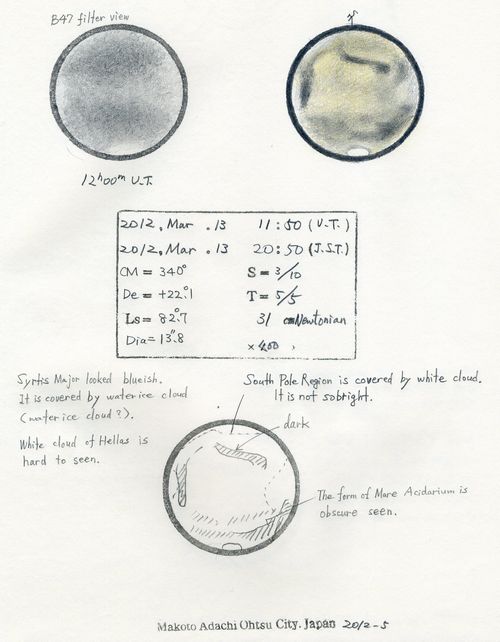 B47 filter view
12h00m U.T.
2012, Mar . 13 11:50 (U.T.)
2012, Mar . 13 20:50 (J.S.T.)
CM = 340° S = 3/10
De = +22.°1 T = 5/5
Ls = 82.°7 31 cm Newtonian
Dia = 13."8 × 400
Syrtis Major looked blueish.
It is covered by water ice cloud
(water ice cloud?).
White cloud of Hellas is
hard to seen.
South Pole Region is covered by white cloud.
It is not sobright.
dark
The form of Mare Acidarium is
obscure seen.
Makoto Adachi Ohtsu City. Japan 2012-5